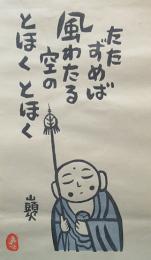 たた
ずめば
風わたる
空の
とほく とほく
山頭火